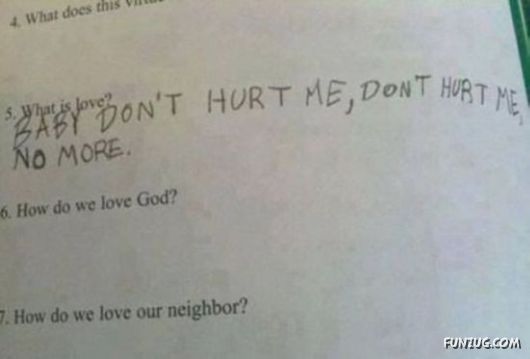 4. What does this
5. What is love?
BABY DON'T HURT ME, DON'T HURT ME,
NO MORE.
6. How do we love God?
7. How do we love our neighbor?
FUNZUG.COM